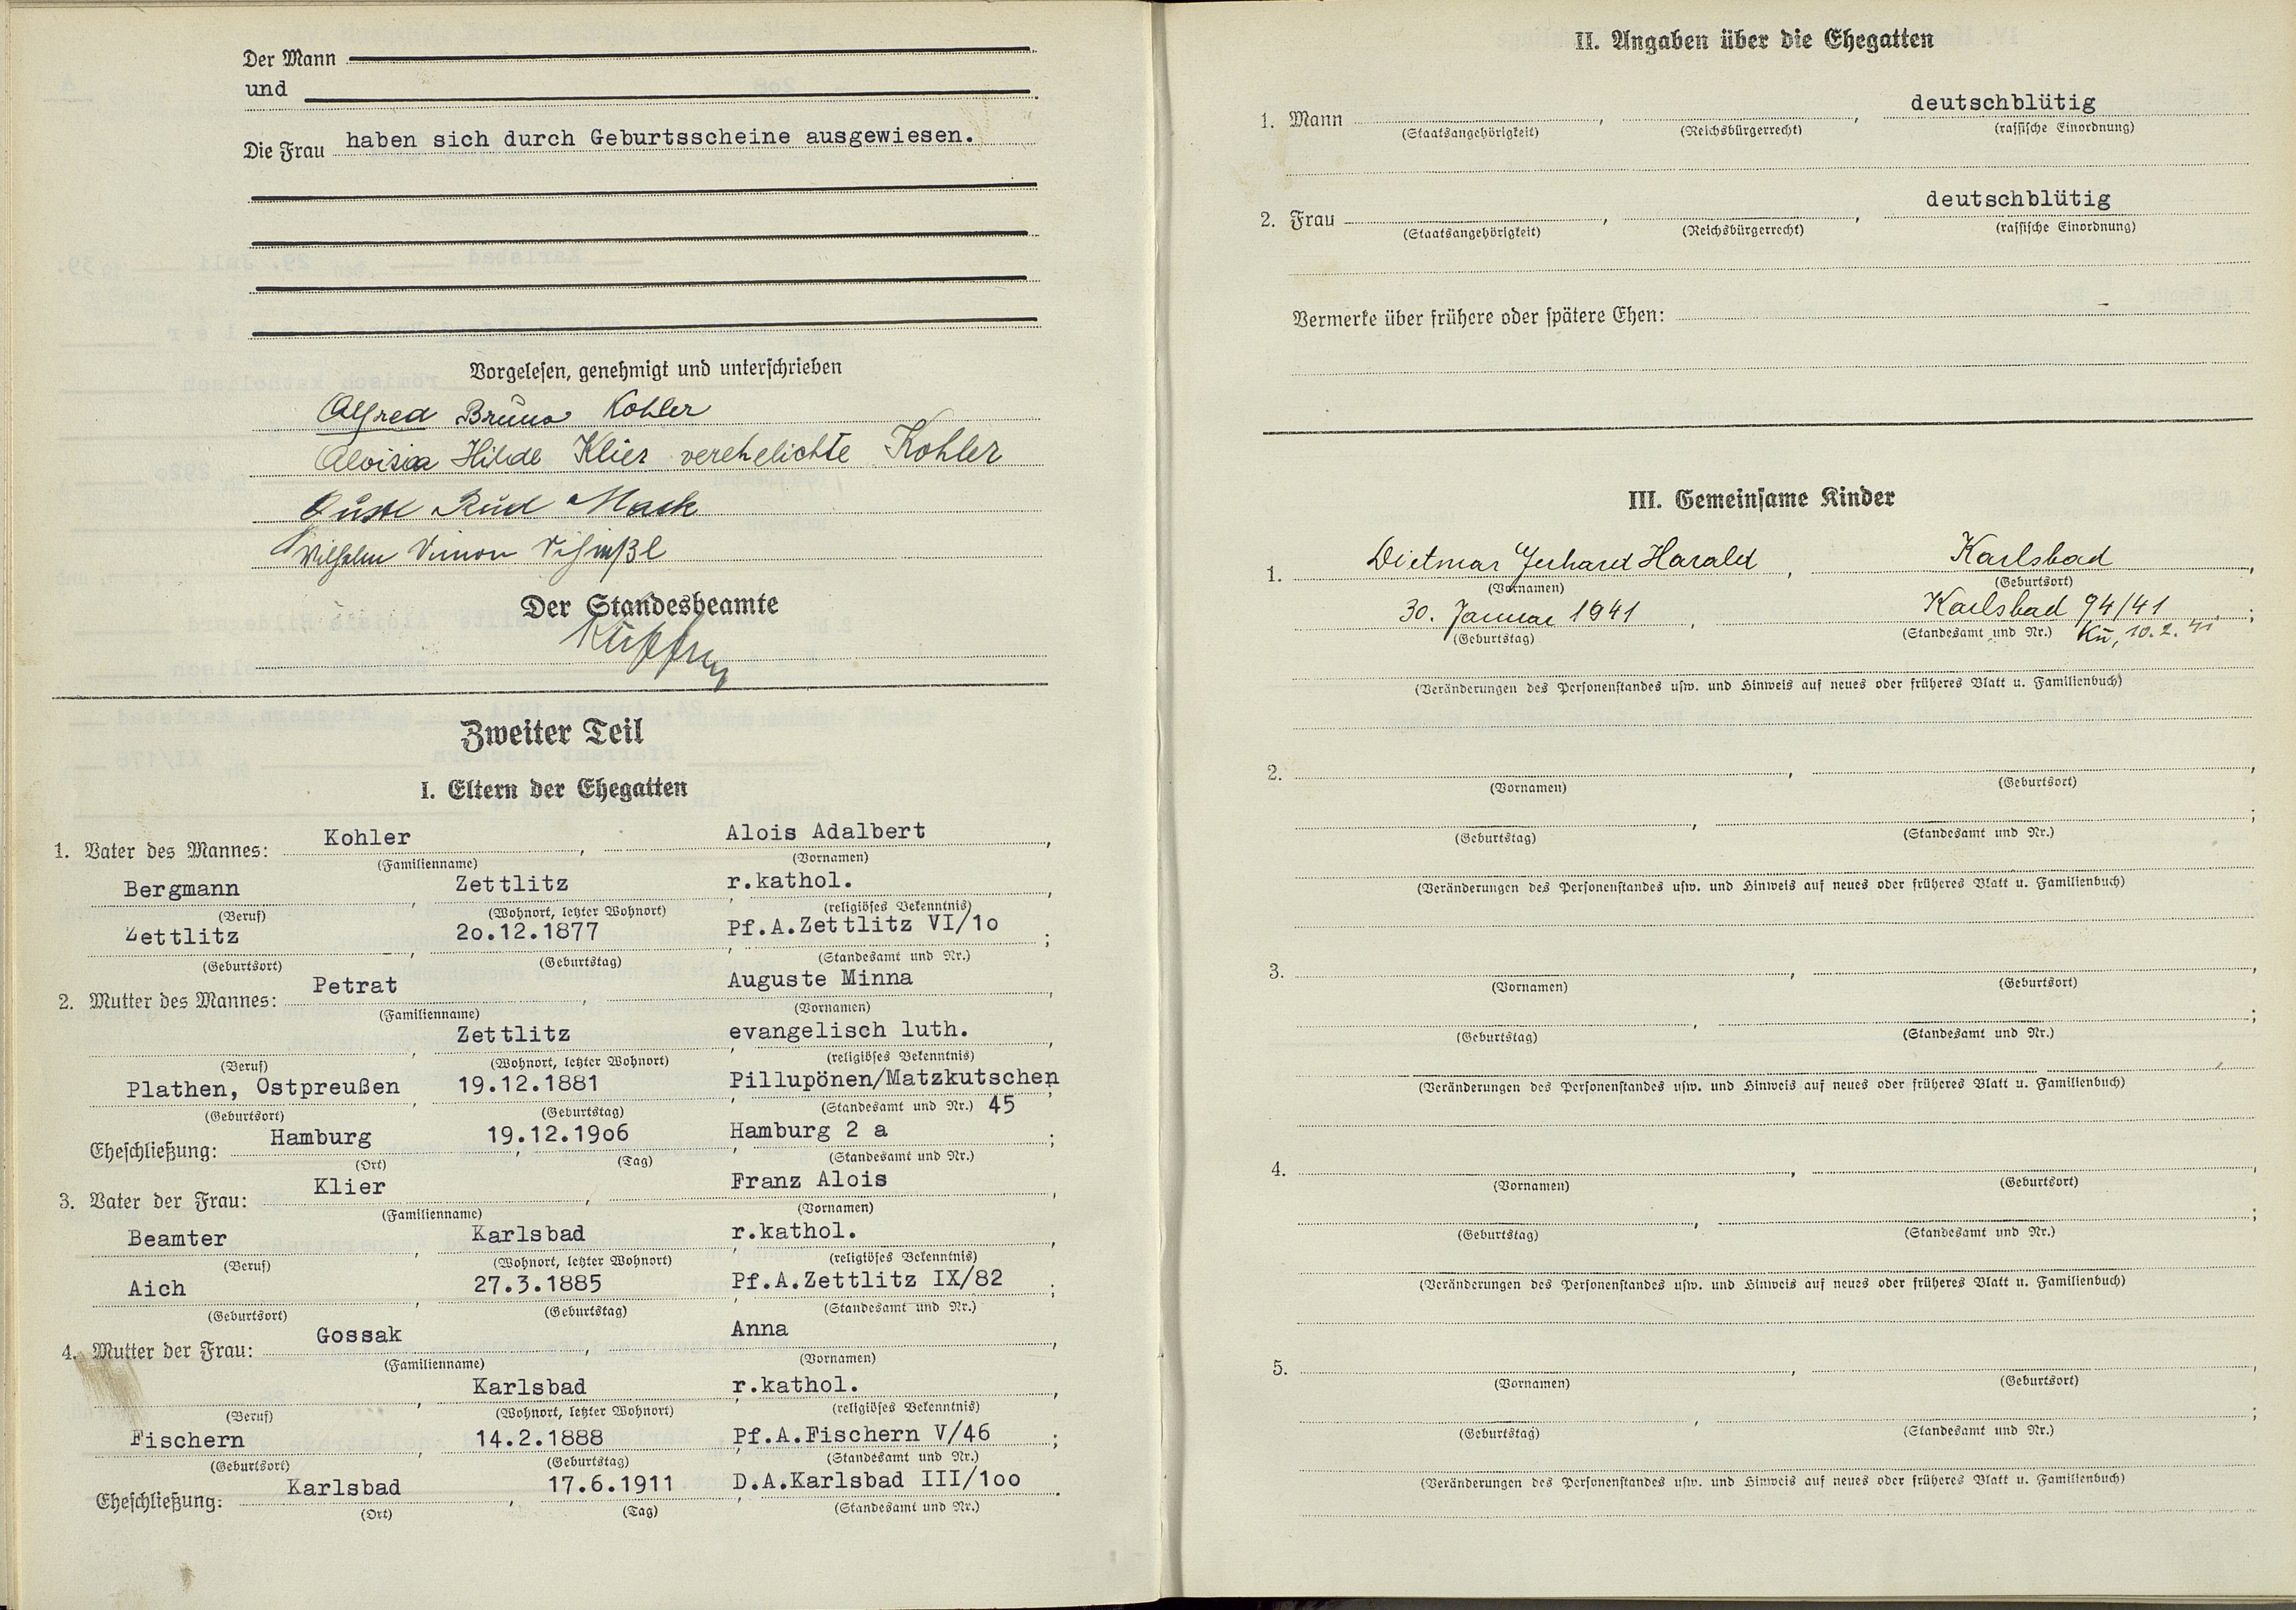 Der Mann
und
Die Frau haben sich durch Geburtsscheine ausgewiesen.
Vorgelesen, genehmigt und unterschrieben
Alfred Bruno Kohler
Aloisia Hilde Klier verehelichte Kohler
Mack
Wilhelm
Der Standesbeamte
Zweiter Teil
I. Eltern der Ehegatten
1. Vater des Mannes: Kohler, Alois Adalbert,
(Familienname) (Vornamen)
Bergmann, Zettlitz, r.kathol.,
(Beruf) (Wohnort, letzter Wohnort) (religiöses Bekenntnis)
Zettlitz, 2o.12.1877, Pf.A.Zettlitz VI/1o;
(Geburtsort) (Geburtstag) (Standesamt und Nr.)
2. Mutter des Mannes: Petrat, Auguste Minna,
(Familienname) (Vornamen)
Zettlitz, evangelisch luth.,
(Beruf) (Wohnort, letzter Wohnort) (religiöses Bekenntnis)
Plathen, Ostpreußen, 19.12.1881, Pillupönen/Matzkutschen;
(Geburtsort) (Geburtstag) (Standesamt und Nr.) 45
Eheschließung: Hamburg, 19.12.19o6, Hamburg 2 a;
(Ort) (Tag) (Standesamt und Nr.)
3. Vater der Frau: Klier, Franz Alois,
(Familienname) (Vornamen)
Beamter, Karlsbad, r.kathol.,
(Beruf) (Wohnort, letzter Wohnort) (religiöses Bekenntnis)
Aich, 27.3.1885, Pf.A.Zettlitz IX/82;
(Geburtsort) (Geburtstag) (Standesamt und Nr.)
4. Mutter der Frau: Gossak, Anna,
(Familienname) (Vornamen)
Karlsbad, r.kathol.,
(Beruf) (Wohnort, letzter Wohnort) (religiöses Bekenntnis)
Fischern, 14.2.1888, Pf.A.Fischern V/46;
(Geburtsort) (Geburtstag) (Standesamt und Nr.)
Eheschließung: Karlsbad, 17.6.1911, D.A.Karlsbad III/1oo.
(Ort) (Tag) (Standesamt und Nr.)
II. Angaben über die Ehegatten
1. Mann , , deutschblütig
(Staatsangehörigkeit) (Reichsbürgerrecht) (rassische Einordnung)
2. Frau , , deutschblütig
(Staatsangehörigkeit) (Reichsbürgerrecht) (rassische Einordnung)
Vermerke über frühere oder spätere Ehen: –
III. Gemeinsame Kinder
1. Dietmar Gerhard Harald, Karlsbad,
(Vornamen) (Geburtsort)
30. Januar 1941, Karlsbad 94/41;
(Geburtstag) (Standesamt und Nr.) Kü, 10.2.41
(Veränderungen des Personenstandes usw. und Hinweis auf neues oder früheres Blatt u. Familienbuch)
2. , ,
(Vornamen) (Geburtsort)
, ;
(Geburtstag) (Standesamt und Nr.)
(Veränderungen des Personenstandes usw. und Hinweis auf neues oder früheres Blatt u. Familienbuch)
3. , ,
(Vornamen) (Geburtsort)
, ;
(Geburtstag) (Standesamt und Nr.)
(Veränderungen des Personenstandes usw. und Hinweis auf neues oder früheres Blatt u. Familienbuch)
4. , ,
(Vornamen) (Geburtsort)
, ;
(Geburtstag) (Standesamt und Nr.)
(Veränderungen des Personenstandes usw. und Hinweis auf neues oder früheres Blatt u. Familienbuch)
5. , ,
(Vornamen) (Geburtsort)
, ;
(Geburtstag) (Standesamt und Nr.)
(Veränderungen des Personenstandes usw. und Hinweis auf neues oder früheres Blatt u. Familienbuch)